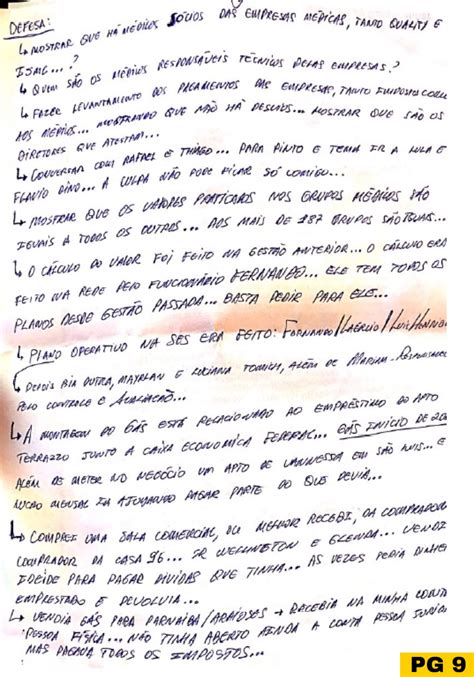 DEFESA:
↳ MOSTRAR QUE HÁ MÉDICOS SÓCIOS DAS EMPRESAS MÉDICAS, TANTO QUALITY E
ISMC...?
↳ QUEM SÃO OS MÉDICOS RESPONSÁVEIS TÉCNICOS DELAS EMPRESAS?
↳ FAZER LEVANTAMENTO DOS PAGAMENTOS DAS EMPRESAS, TANTO IMPOSTOS COMO
AOS MÉDICOS... MOSTRANDO QUE NÃO HÁ DESVIOS... MOSTRAR QUE SÃO OS
DIRETORES QUE ATESTAM...
↳ CONVERSAR COM RAFAEL E THIAGO... PARA PINTO E TEMA IR A LULA E
FLAVIO DINO... A CULPA NÃO PODE FICAR SÓ COMIGO...
↳ MOSTRAR QUE OS VALORES PRATICADOS NOS GRUPOS MÉDICOS SÃO
IGUAIS A TODOS OS OUTROS... AOS MAIS DE 187 GRUPOS SÃO IGUAIS...
↳ O CÁLCULO DO VALOR FOI FEITO NA GESTÃO ANTERIOR... O CÁLCULO ERA
FEITO NA REDE PELO FUNCIONÁRIO FERNANDO... ELE TEM TODOS OS
PLANOS DESDE GESTÃO PASSADA... BASTA PEDIR PARA ELE...
↳ PLANO OPERATIVO NA SES ERA FEITO: FERNANDO/LAÉRCIO/LUIS
DEPOIS BIA DUTRA, E LUCIANA ALÉM DE
PELO CONTROLE E AVALIAÇÃO...
↳ A MONTAGEM DO GÁS ESTÁ RELACIONADO AO EMPRÉSTIMO DO APTO
TERRAZZO JUNTO A CAIXA ECONOMICA FEDERAL... GÁS INÍCIO DE
ALÉM DE METER NO NEGÓCIO UM APTO DE VANNESSA EM SÃO LUIS... E
LUCRO MENSAL IA AJUDANDO PAGAR PARTE DO QUE DEVIA...
↳ COMPREI UMA SALA COMERCIAL, OU MELHOR RECEBI, DA COMPRADOR
COMPRADOR DA CASA 96... SR WELLINGTON E GLENDA... VENDI
PARA PAGAR DÍVIDAS QUE TINHA... AS VEZES PEDIA DINHEI
EMPRESTADO E DEVOLVIA...
↳ VENDIA GÁS PARA PARNAIBA/ARAIOSES → RECEBIA NA MINHA CONTA
PESSOA FÍSICA... NÃO TINHA ABERTO AINDA A CONTA PESSOA JURIDICA
MAS PAGAVA TODOS OS IMPOSTOS...
PG 9